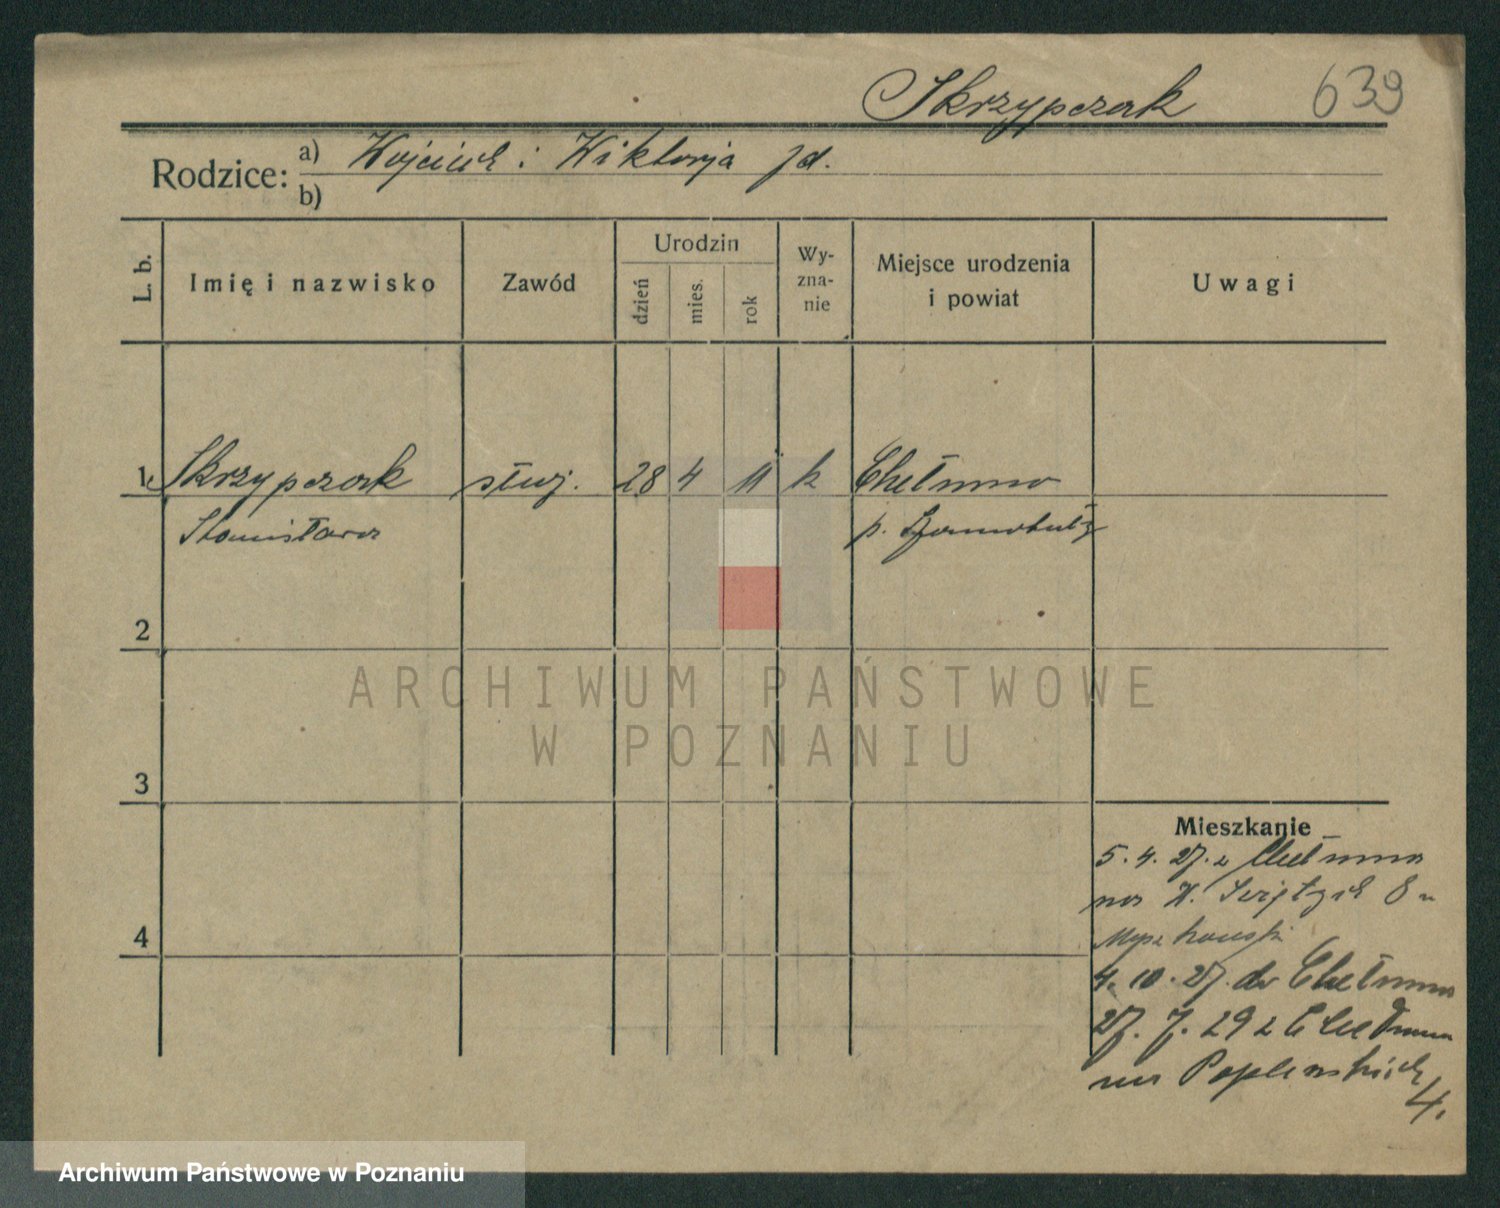 Skrzypczak 639
Rodzice: a) Wojciech i Wiktorja jd.
b)
L. b. Imię i nazwisko Zawód Urodzin dzień mies. rok Wyznanie Miejsce urodzenia i powiat Uwagi
1. Skrzypczak służ. 28 4 11 k Chełmno
Stanisława p. Szamotuły
2
ARCHIWUM PAŃSTWOWE
W POZNANIU
3
Mieszkanie
5. 4. 27. z Chełmna
na W. Świętych 8 u
4
4. 10. 27. do Chełmna
27. 7. 29 z Chełmna
na Poplińskich
4.
Archiwum Państwowe w Poznaniu